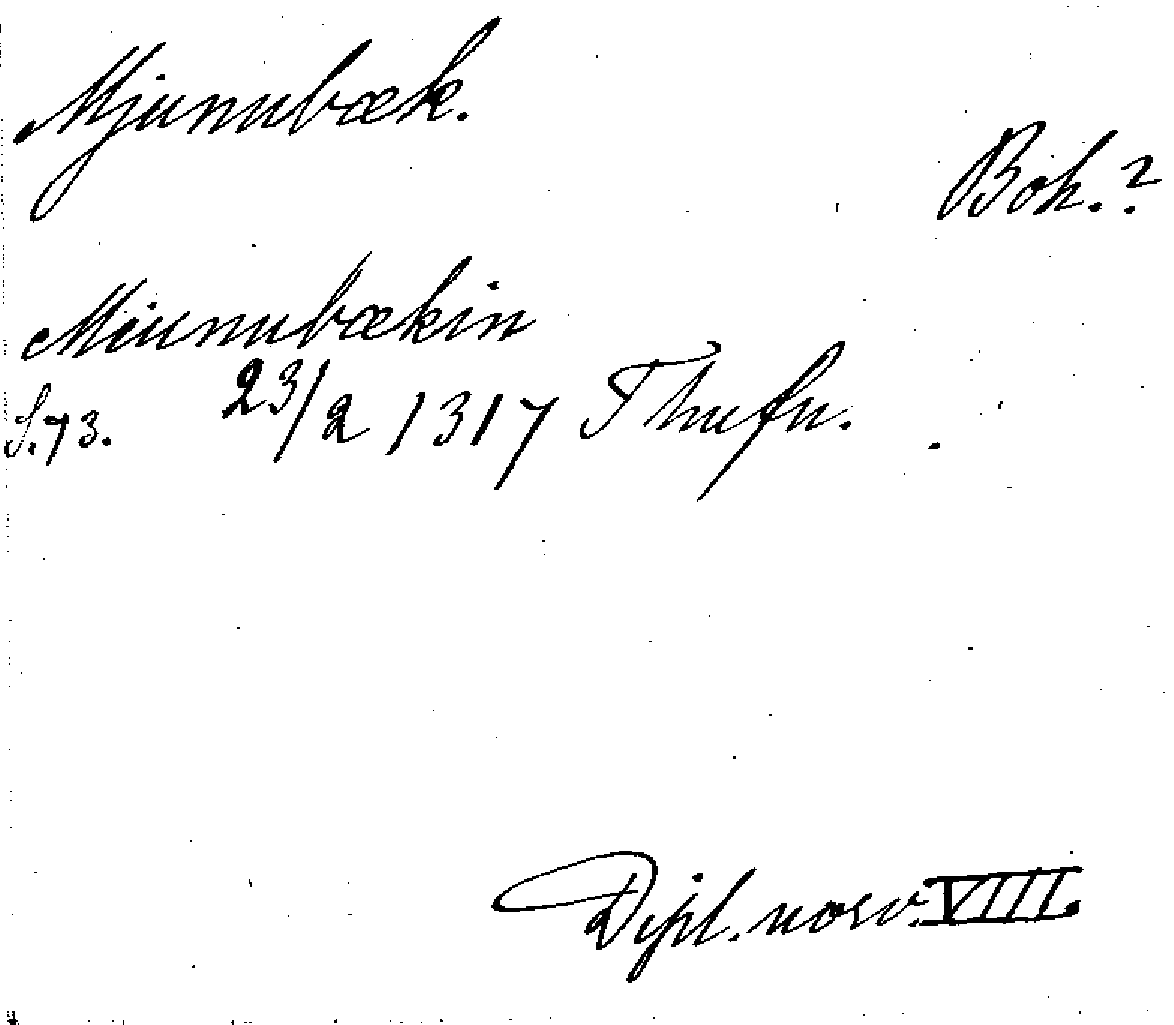 Mjunnubæk.
Boh.?
Miunnubækin
S. 73. 23/2 1317 Thuefn.
Dipl. norv. VIII.